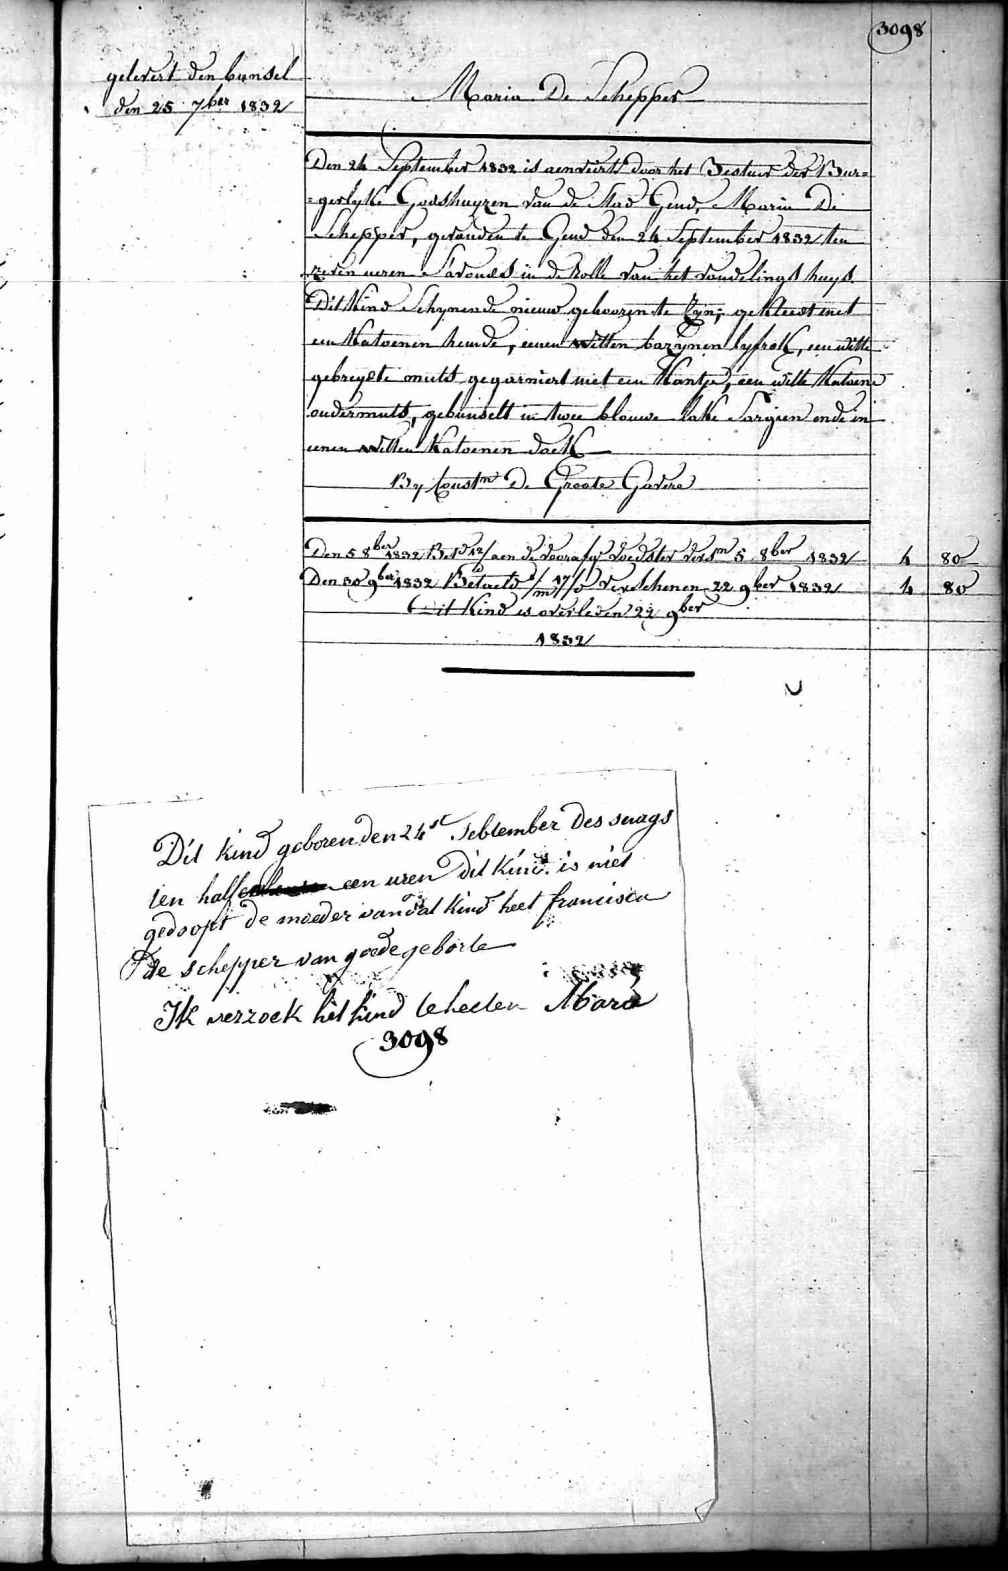 3098
gelevert den bunsel
den 25 7ber 1832
Maria De Schepper
Den 24 September 1832 is aenveirt door het Bestuer der Bur=
=gerlyke Godshuyzen van de Stad Gend, Maria De
Schepper, gevonden te Gend den 24 September 1832 ten
zeven ueren S'avonds in de Rolle van het vondelings huys.
Dit Kind Schynende nieuw gebooren te Zyn, gekleed met
een Katoenen hemde, eenen witten bazynen lyfrok, een witte
gebreyde muts gegarniert met een Kantje, een witte Katoene
ondermuts, gebunselt in twee blauwe lake Sargien ende in
eenen witten Katoenen doek
By Const.n De Groote Gavere
Den 5 8ber 1832 Bet.d 12/ aen de voorafge voedster vers.n 5 8ber 1832 4 80
Den 30 9ber 1832 Betaeld 17/ verschenen 22 9ber 1832 4 80
Dit Kind is overleden 22 9ber
1832
Dit kind geboren den 24st sebtember des snags
ten half een uren Dit kind is niet
gedoopt de moeder van dat kind heet francisca
De schepper van goede geborte
Ik verzoek het kind te heeten Mara
3098